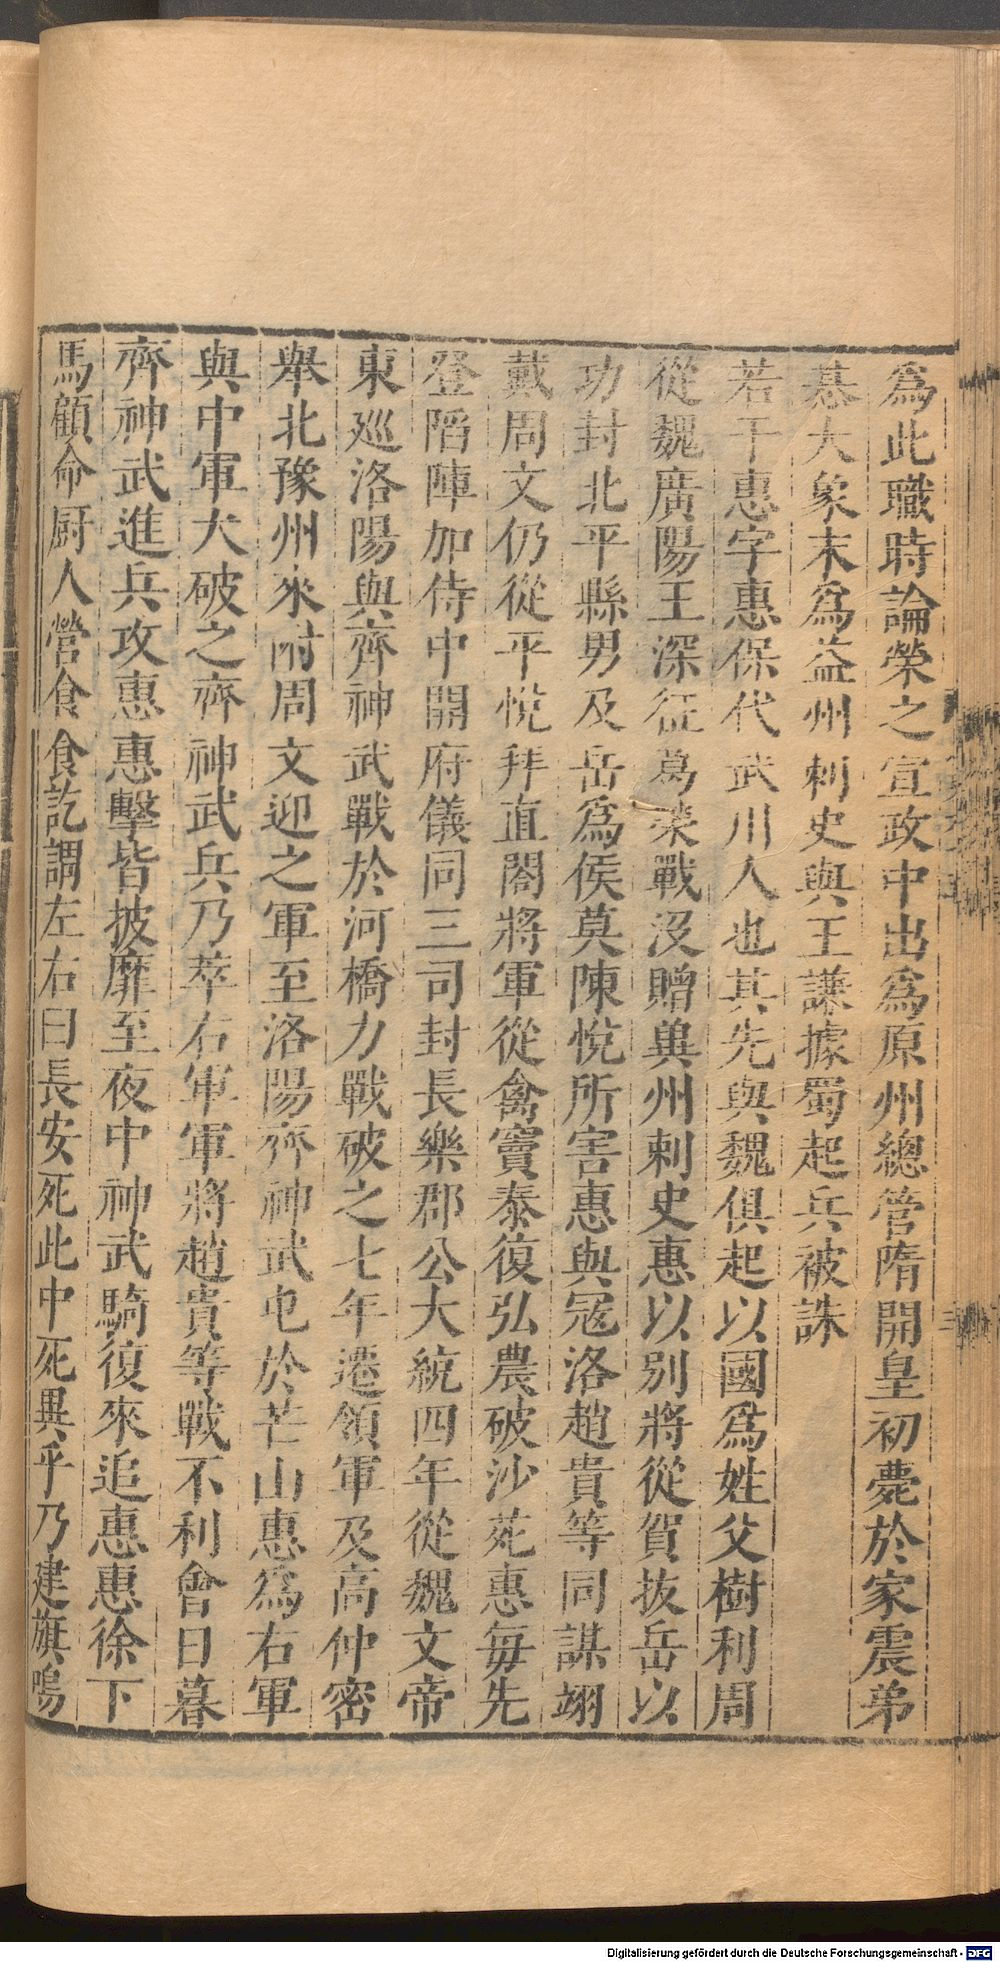 為此職時論榮之宣政中出為原州總管隋開皇初薨於家震弟
惎大象末為益州刺史與王謙據蜀起兵被誅
若干惠字惠保代武川人也其先與魏俱起以國為姓父樹利周
從魏廣陽王深征葛榮戰沒贈兾州刺史惠以別將從賀拔岳以
功封北平縣男及岳為侯莫陳悅所害惠與冦洛趙貴等同謀翊
戴周文仍從平悅拜直閤將軍從禽竇泰復弘農破沙苑惠每先
登陷陣加侍中開府儀同三司封長樂郡公大統四年從魏文帝
東廵洛陽與齊神武戰於河橋力戰破之七年遷領軍及高仲密
舉北豫州來附周文迎之軍至洛陽齊神武屯於芒山惠為右軍
與中軍大破之齊神武兵乃萃右軍軍將趙貴等戰不利會日暮
齊神武進兵攻惠惠擊皆披靡至夜中神武騎復來追惠惠徐下
馬顧命厨人營食食訖謂左右曰長安死此中死異乎乃建旗鳴
Digitalisierung gefördert durch die Deutsche Forschungsgemeinschaft - DFG